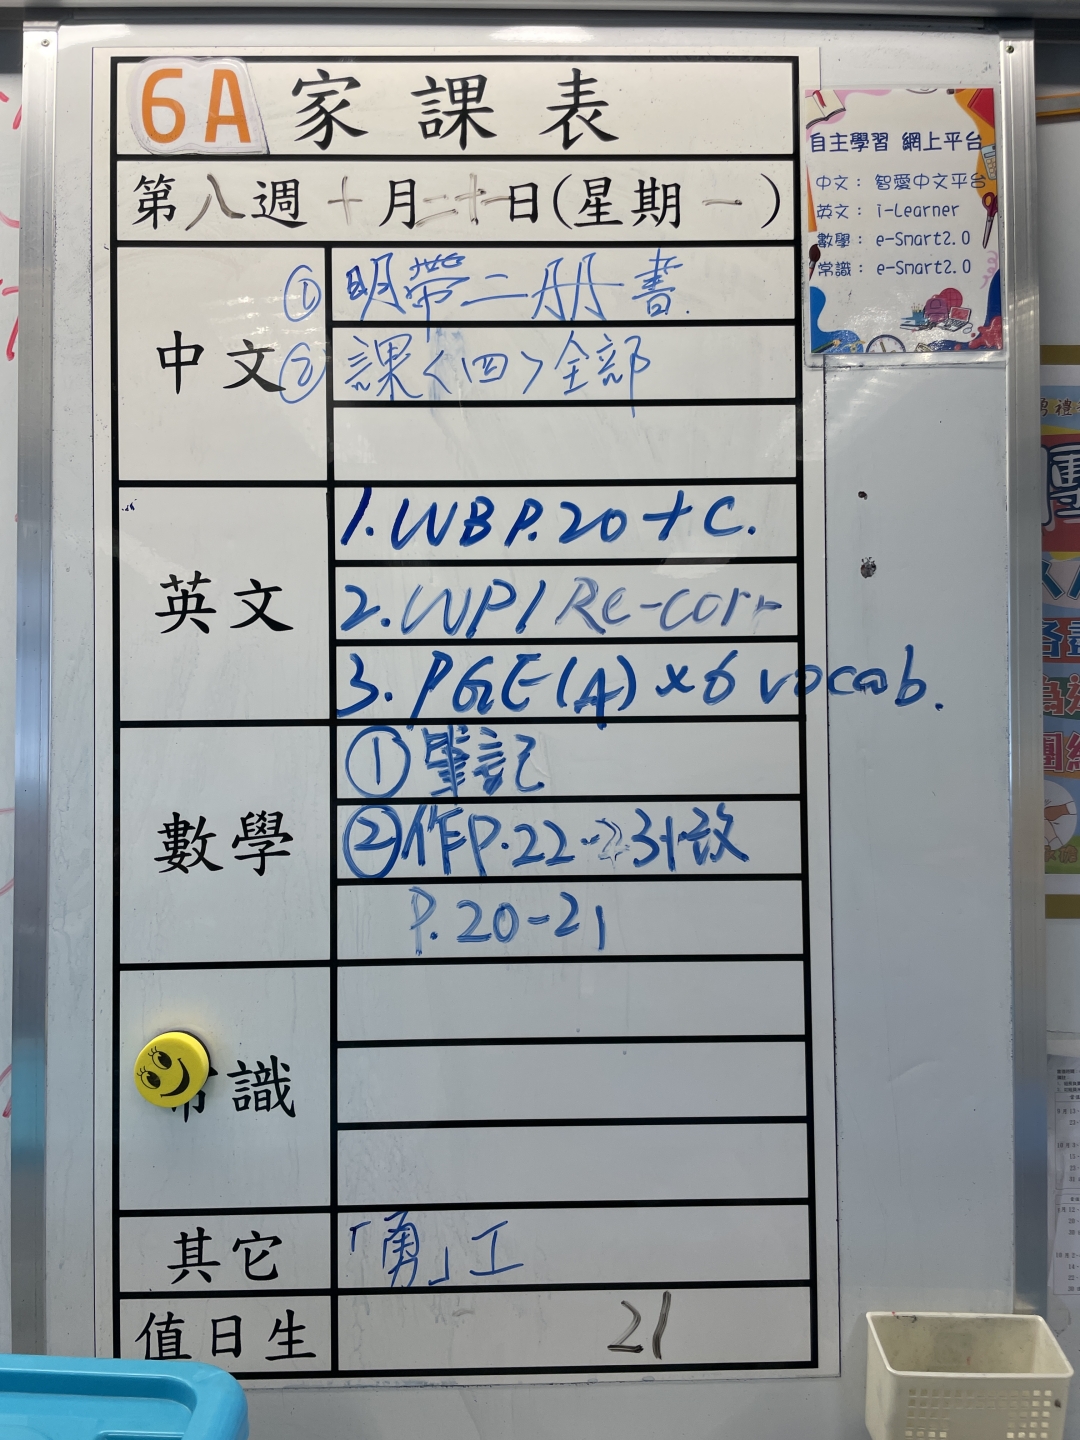 6A 家課表
第八週十月二十一日(星期一)
中文
① 明帶二册書.
② 課〈四〉全部
英文
1. WB P.20 + C.
2. WP1 Re-corr
3. PGE(A) x 6 vocab.
數學
① 筆記
② 作P.22-23+改
P.20-21
識
其它
「勇」工
值日生
21
自主學習 網上平台
中文： 智愛中文平台
英文： i-Learner
數學： e-Smart2.0
常識： e-Smart2.0